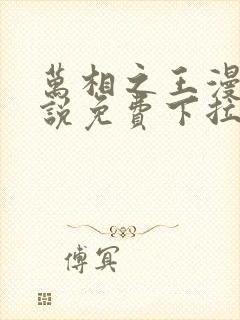 萬相之王漫
說免費下拉
傅冥